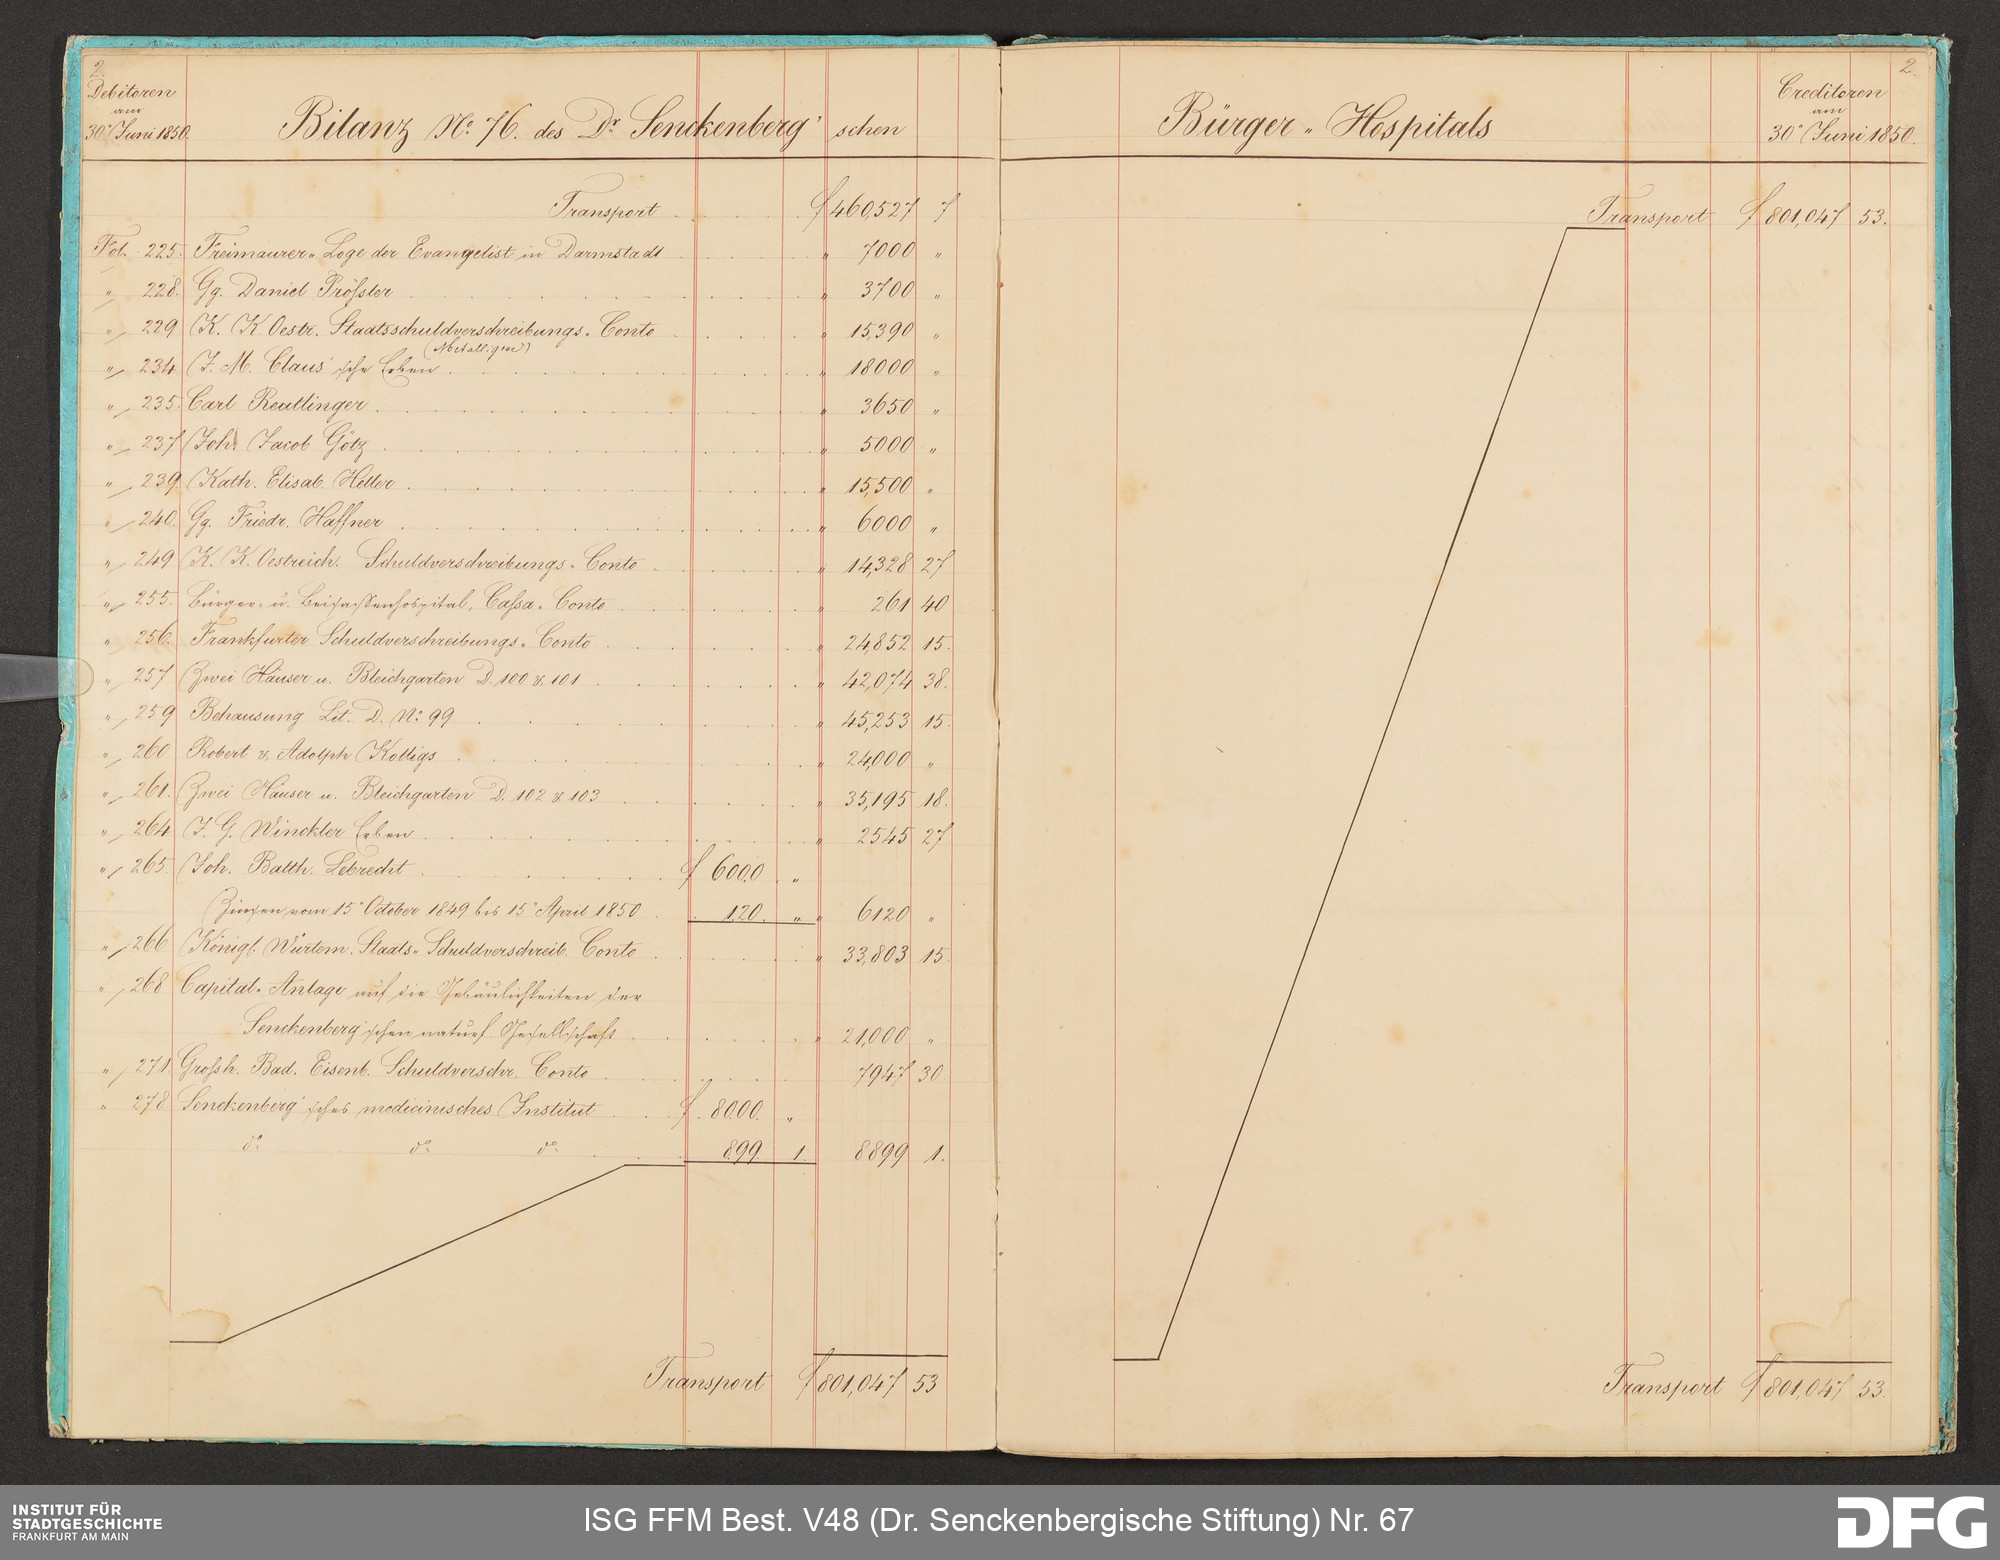 2.
Debitoren
am
30. Juni 1850.
Bilanz No. 76. des Dr. Senckenberg'schen
Transport f 460,527 7
Fol. 225. Freimaurer-Loge der Evangelist in Darmstadt " 7000 "
" 228. Gg. Daniel Prößler " 3700 "
" 229 K. K. Oestr. Staatsschuldverschreibungs-Conto " 15,390 "
(Metalliques)
" 234. J. M. Claus'sche Erben " 18000 "
" 235. Carl Reutlinger " 3650 "
" 237 Joh. Jacob Götz " 5000 "
" 239. Kath. Elisab. Heller " 15,500 "
" 240. Gg. Friedr. Haffner " 6000 "
" 249 K. K. Oestreich. Schuldverschreibungs-Conto " 14,328 27
" 255. Bürger- u. Beisassenhospital, Cassa-Conto " 261 40
" 256. Frankfurter Schuldverschreibungs-Conto " 24,852 15.
" 257 Zwei Häuser u. Bleichgarten D. 100 & 101 " 42,074 38.
" 259 Behausung Lit. D. No. 99 " 45,253 15.
" 260 Robert & Adolph Kolligs " 24,000 "
" 261. Zwei Häuser u. Bleichgarten D. 102 & 103 " 35,195 18.
" 264 J. G. Winckler Erben " 2545 27
" 265. Joh. Balth. Lebrecht f 6000 "
Zinsen vom 15. October 1849 bis 15. April 1850 120. " " 6120 "
" 266 Königl. Würtem. Staats-Schuldverschreib. Conto " 33,803 15.
" 268 Capital-Anlage auf die Gebäulichkeiten der
Senckenberg'schen naturf Gesellschaft " 21,000 "
" 271. Großh. Bad. Eisenb. Schuldverschr. Conto 7947 30
" 278 Senckenberg'sches medicinisches Institut f. 8000. "
do. do. do. 899. 1. 8899 1.
Transport f 801,047 53
2.
Bürger-Hospitals
Creditoren
am
30. Juni 1850.
Transport f 801,047 53.
Transport f 801,047 53.
INSTITUT FÜR
STADTGESCHICHTE
FRANKFURT AM MAIN
ISG FFM Best. V48 (Dr. Senckenbergische Stiftung) Nr. 67
DFG